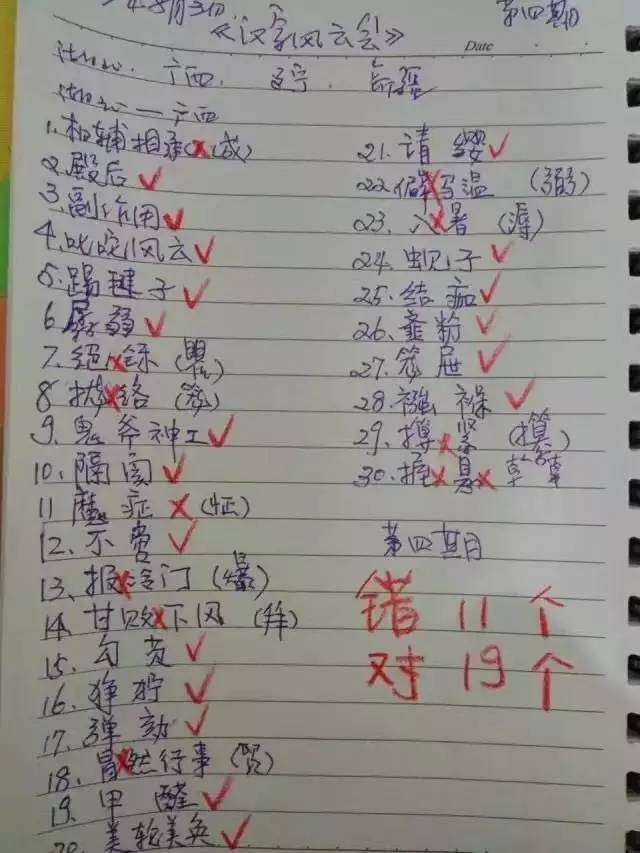 年8月3日 第四期
《汉字风云会》
Date
广西. 辽宁. 新疆
——广西
1.相辅相承(成)
2.殿后
3.副作用
4.叱咤风云
5.踢毽子
6.孱弱
7.绍
8.络(笼)
9.鬼斧神工
10.隔阂
11 症(怔)
12.不啻
13.报冷门(爆)
14.甘败下风(拜)
15.勾芡
16.狰狞
17.弹劾
18.冒然行事(贸)
19.甲醛
20.美轮美奂
21.请缨
22.写温(弱)
23.入暑(溽)
24.蚬子
25.结痂
26.齑粉
27.笼屉
28.襁褓
29.
30.
第四期
错11个
对19个